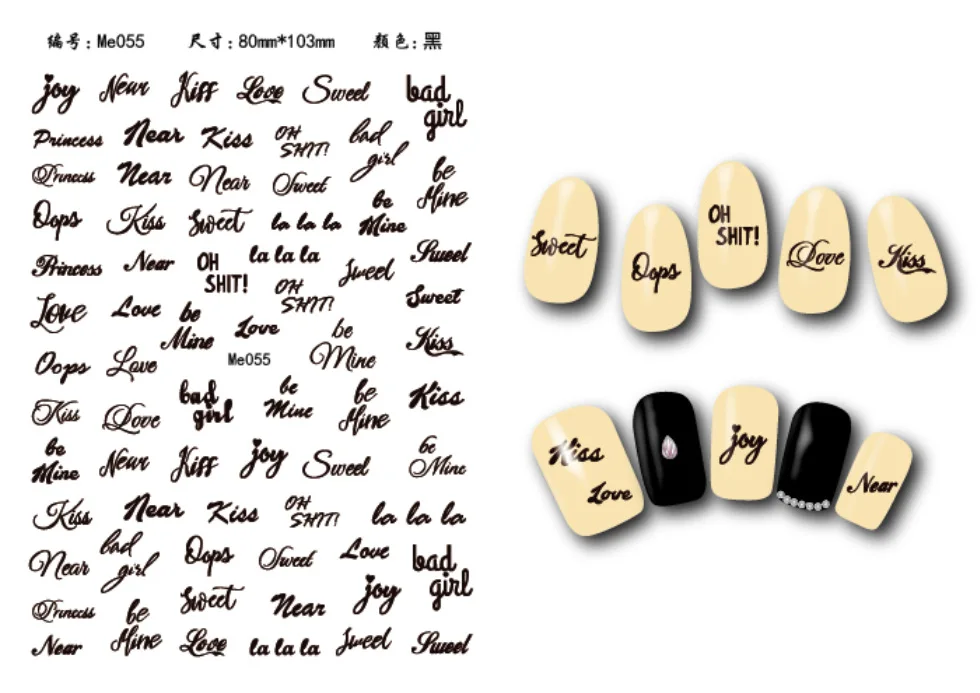 编号:Me055 尺寸:80mm*103mm 颜色:黑
joy Near Kiss Love Sweet bad girl
Princess Near Kiss OH SHIT! bad girl
Princess Near Near Sweet be Mine
Oops Kiss Sweet la la la be Mine
Princess Near OH SHIT! la la la Sweet Sweet
Love Love be Mine OH SHIT! Sweet
Love be Mine Kiss
Oops Love Me055
Kiss Love bad girl be Mine be Mine Kiss
be Mine Near Kiss joy Sweet be Mine
Kiss Near Kiss OH SHIT! la la la
Near bad girl Oops Sweet Love bad girl
Princess be Mine Sweet Near joy
Near Love la la la Sweet Sweet
Sweet Oops OH SHIT! Love Kiss
Kiss Love joy Near